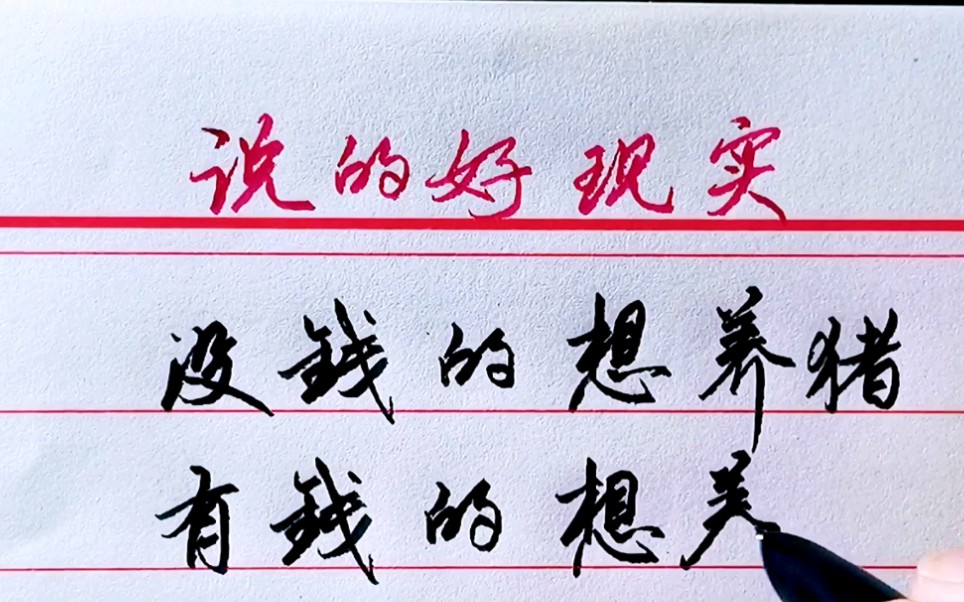 说的好现实
没钱的想养猪
有钱的想